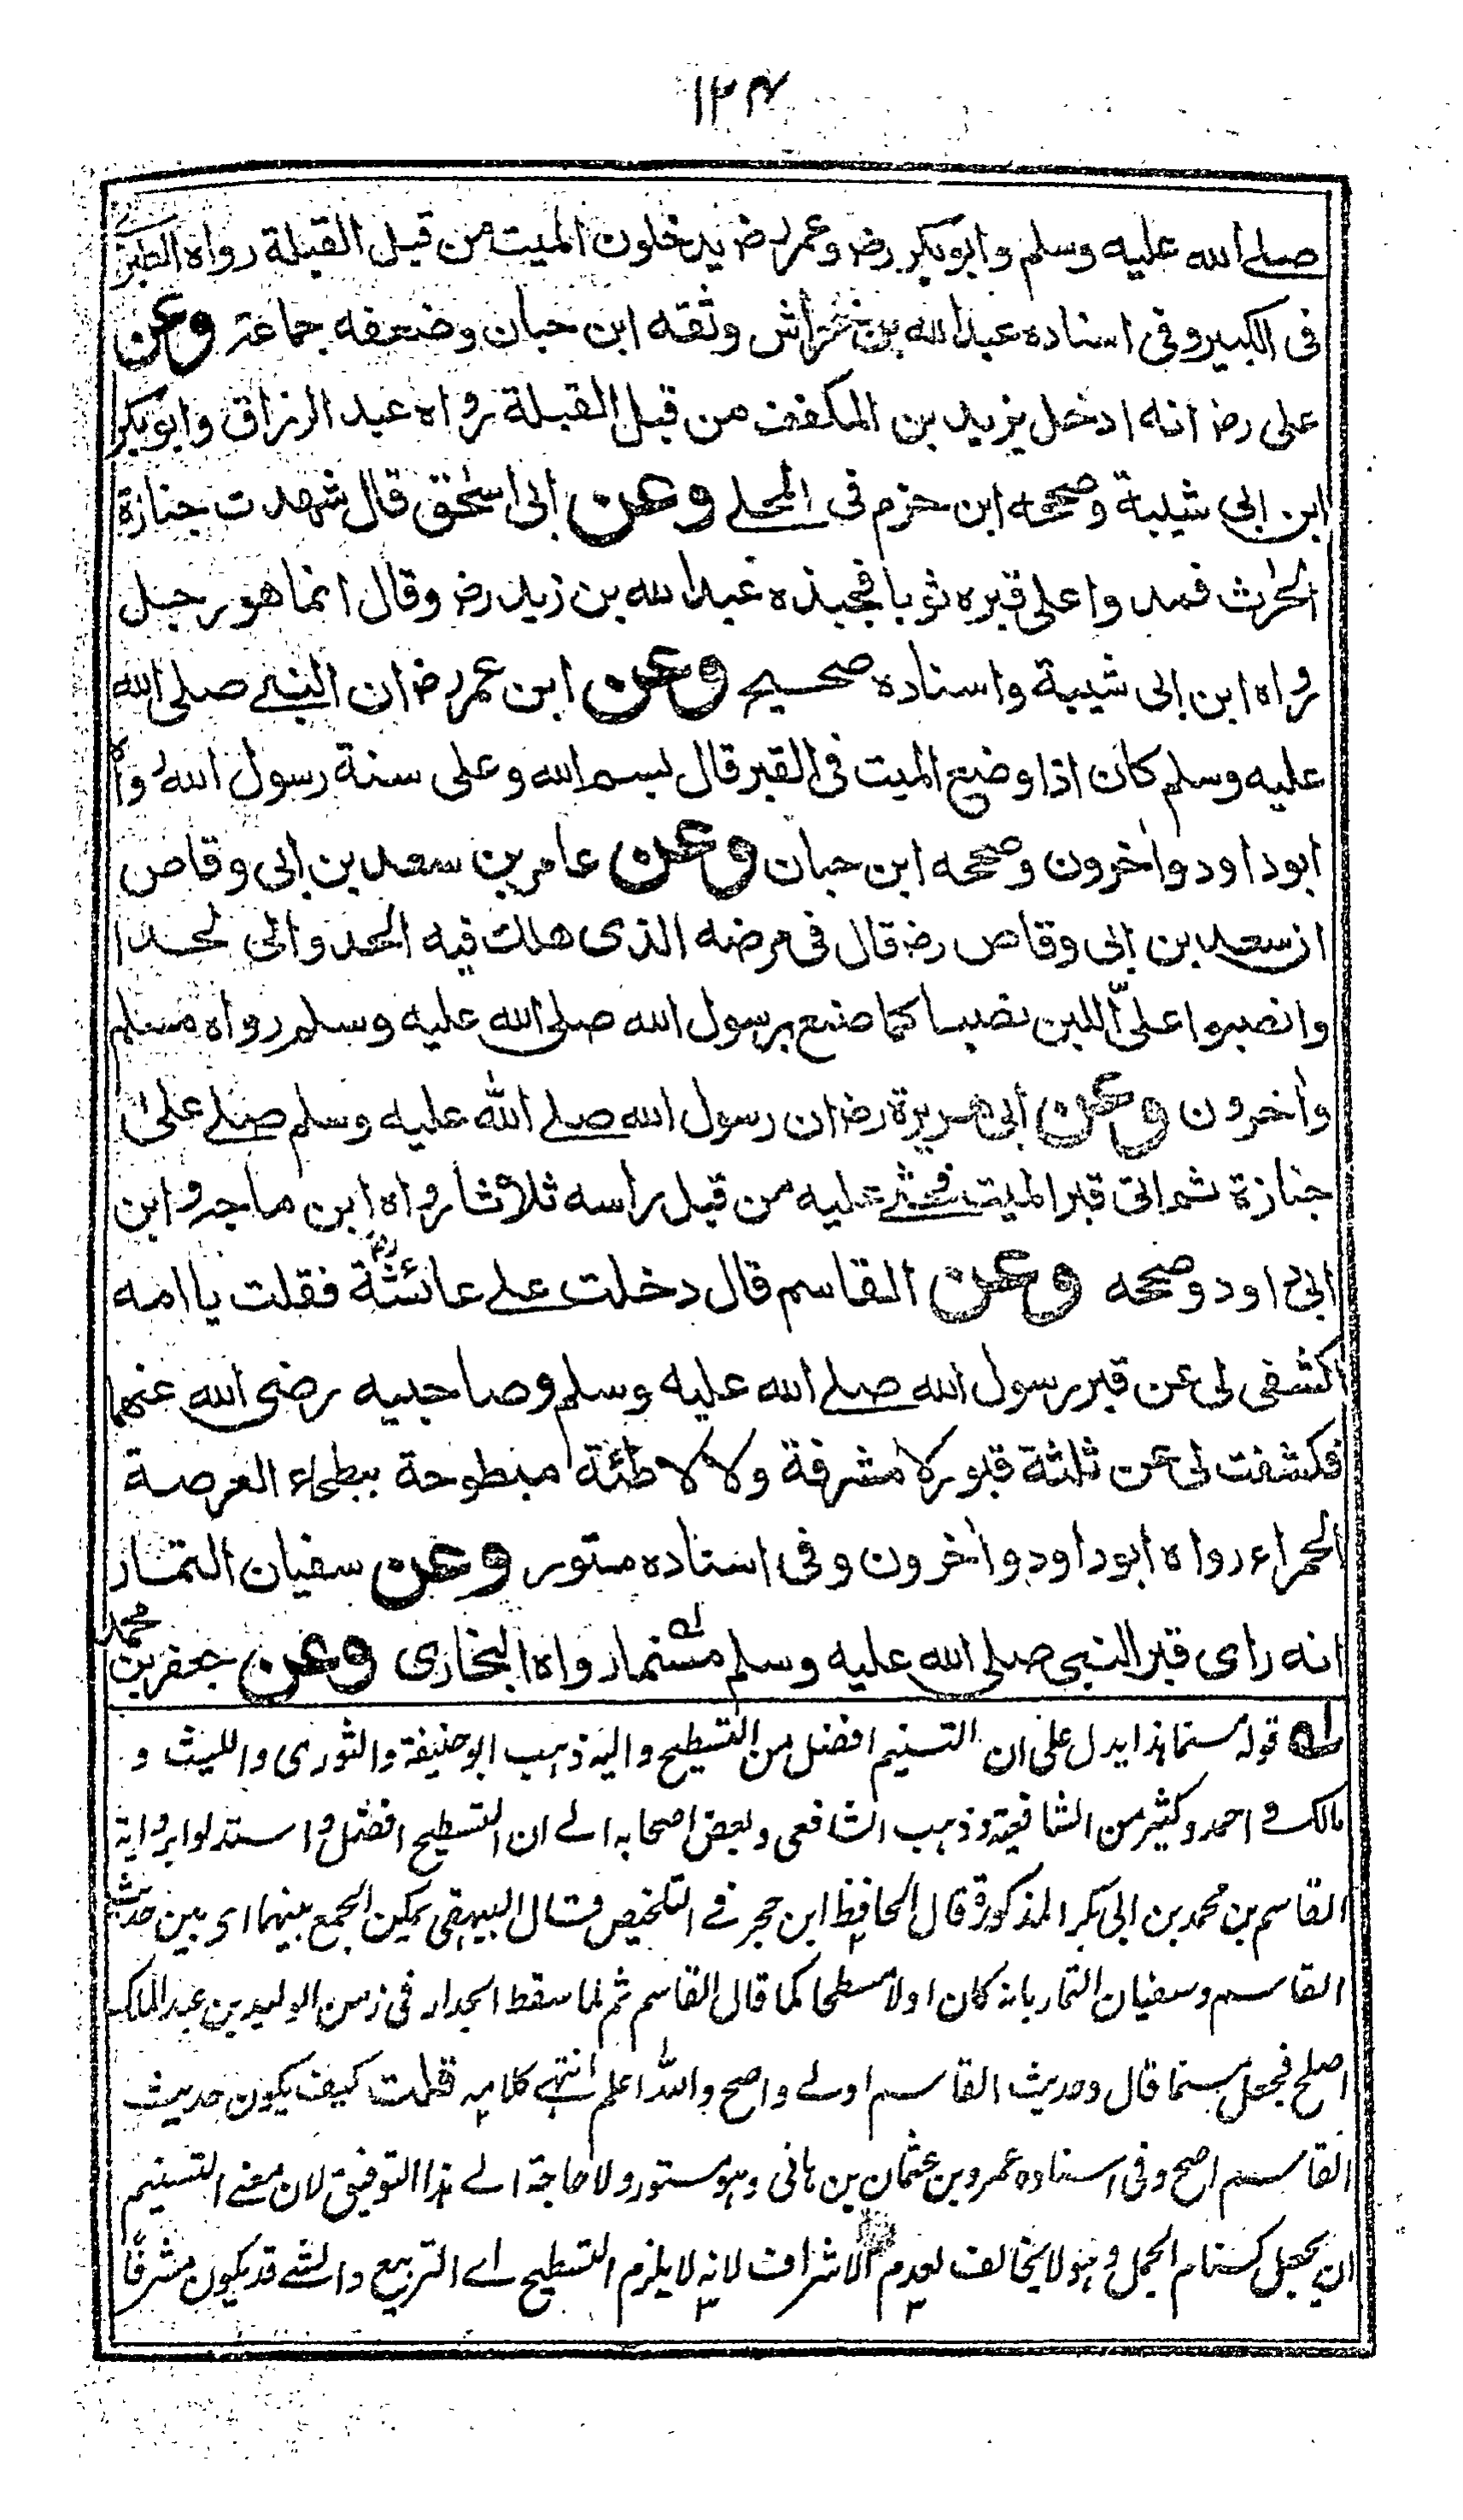 ١٢٤
صلے الله عليه وسلم وابوبكر رضـ وعمر رضـ يدخلون الميت من قبل القبلة رواه الطبرٰ
فى الكبير وفى اسناده عبد الله بن خراش وثقه ابن حبان وضعفه جماعة وعن
على رضـ انه ادخل يزيد بن المكفف من قبل القبلة رواه عبد الرزاق وابوبكر
ابن ابي شيبة وصححه ابن حزم فى المحلے وعن ابى اسحٰق قال شهدت جنازة
الحٰرث فمدوا على قبره ثوبا فجبذه عبد الله بن زيد رضـ وقال انما هو رجل
رواه ابن ابى شيبة واسناده صحيح وعن ابن عمر رضـ ان النبے صلى الله
عليه وسلم كان اذا وضع الميت فى القبر قال بسم الله وعلى سنة رسول الله رواه
ابوداود واٰخرون وصححه ابن حبان وعن عامر بن سعد بن ابى وقاص
ان سعد بن ابى وقاص رضـ قال فى مرضه الذى هلك فيه الحدوا لى لحدا
وانصبوا علىّ اللبن نصبا كما صنع برسول الله صلى الله عليه وسلم رواه مسلم
واٰخرون وعن ابى هريرة رضـ ان رسول الله صلے الله عليه وسلم صلے علىٰ
جنازة ثم اتى قبر الميت فحثے عليه من قبل راسه ثلاثا رواه ابن ماجه وابن
ابى داود وصححه وعن القاسم قال دخلت علے عائشة رضـ فقلت يا امه
اكشفى لى عن قبر رسول الله صلے الله عليه وسلم وصاحبيه رضى الله عنهما
فكشفت لى عن ثلٰثة قبور لا مشرفة ولا لاطئة مبطوحة ببطحاء العرصة
الحمراء رواه ابوداود واٰخرون وفى اسناده مستور وعن سفيان التمار
انه راى قبر النبى صلى الله عليه وسلم مسنما له رواه البخارى وعن جعفر بن محمد
له قوله مسنما هذا يدل على ان التسنيم افضل من التسطيح واليه ذهب ابو حنيفة والثورى والليث و
مالك و احمد وكثير من الشافعية وذهب الشافعى وبعض اصحابه الے ان التسطيح افضل و استدلوا برواية
القاسم بن محمد بن ابى بكر المذكورة قال الحافظ ابن حجر فے التلخيص قال البيهقى يمكن الجمع بينهما اى بين حديث
القاسم وسفيان التمار بانه كان اولا مسطحا كما قال القاسم ثم لما سقط الجدار فى زمن الوليد بن عبد الملك
اصلح فجعل مسنما قال وحديث القاسم اولے واصح والله اعلم انتهے كلامه قلت كيف يكون حديث
القاسم اصح وفى اسناده عمرو بن عثمان بن هانى وهو مستور ولا حاجة الے هذا التوفيق لان معنے التسنيم
ان يجعل كسنام الجمل وهو لا يخالف لعدم الاشراف لانه لا يلزم التسطيح اے التربيع والشے قد يكون مشرفًا